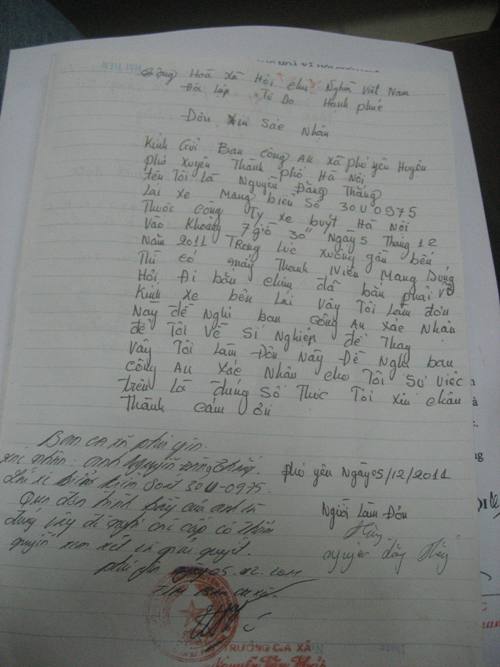 Cộng Hoà Xã Hội Chủ Nghĩa Việt Nam
Độc Lập Tự Do Hạnh Phúc
Đơn Xin Sác Nhân
Kính Gửi Ban Công An Xã phú yên Huyện
phú Xuyên Thành phố Hà Nội
tên Tôi Là Nguyễn Đăng Thắng
Lái Xe Mang biển Số 30U0975
Thuộc Công Ty xe buýt Hà Nội
Vào Khoảng 7giờ 30 Ngày 5 Tháng 12
Năm 2011 Trong Lúc Xuống gần bến
Thì có Thanh Niên Mang Dụng
Đi bắn chim đã bắn phải vỡ
Kính xe bên Lái Vậy Tôi Làm đơn
Này đề Nghị ban Công An Xác Nhân
để Tôi Về Sí Nghiệp để Thay
Vậy Tôi Làm Đơn Nầy Đề Nghị ban
Công An Xác Nhân cho Tôi Sự việc
trên là đúng Sô Thức Tôi xin chân
Thành cảm ơn
Ban CA xã phú yên
xác nhận anh Nguyễn Đăng Thắng
lái xe Biển Kiểm Soát 30U-0975
phú yên Ngày 05/12/2011
Qua đơn trình bày của anh là
đúng vậy đề nghị các cấp có thẩm
quyền xem xét và giải quyết.
Người Làm Đơn
phú yên ngày 05.12.2011
TRƯỞNG C.A XÃ